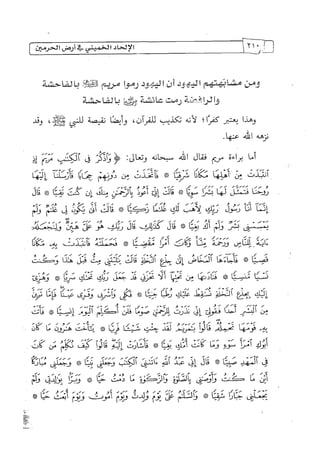 ٢١٠ الإلحاد الخميني في أرض الحرمين
ومن مشابهتهم اليهود أن اليهود رموا مريم بالفاحشة
والرافضة رمت عائشة بالفاحشة
وهذا يعتبر كفرًا؛ لأنه تكذيب للقرآن، وأيضًا نقيصة للنبي ﷺ، وقد
نزهه الله عنها.
أما براءة مريم فقال الله سبحانه وتعالى: ﴿وَاذْكُرْ فِي الْكِتَابِ مَرْيَمَ إِذِ
انْتَبَذَتْ مِنْ أَهْلِهَا مَكَانًا شَرْقِيًّا * فَاتَّخَذَتْ مِنْ دُونِهِمْ حِجَابًا فَأَرْسَلْنَا إِلَيْهَا
رُوحَنَا فَتَمَثَّلَ لَهَا بَشَرًا سَوِيًّا * قَالَتْ إِنِّي أَعُوذُ بِالرَّحْمَنِ مِنْكَ إِنْ كُنْتَ تَقِيًّا * قَالَ
إِنَّمَا أَنَا رَسُولُ رَبِّكِ لِأَهَبَ لَكِ غُلَامًا زَكِيًّا * قَالَتْ أَنَّى يَكُونُ لِي غُلَامٌ وَلَمْ
يَمْسَسْنِي بَشَرٌ وَلَمْ أَكُ بَغِيًّا * قَالَ كَذَلِكِ قَالَ رَبُّكِ هُوَ عَلَيَّ هَيِّنٌ وَلِنَجْعَلَهُ
آيَةً لِلنَّاسِ وَرَحْمَةً مِنَّا وَكَانَ أَمْرًا مَقْضِيًّا * فَحَمَلَتْهُ فَانْتَبَذَتْ بِهِ مَكَانًا
قَصِيًّا * فَأَجَاءَهَا الْمَخَاضُ إِلَى جِذْعِ النَّخْلَةِ قَالَتْ يَا لَيْتَنِي مِتُّ قَبْلَ هَذَا وَكُنْتُ
نَسْيًا مَنْسِيًّا * فَنَادَاهَا مِنْ تَحْتِهَا أَلَّا تَحْزَنِي قَدْ جَعَلَ رَبُّكِ تَحْتَكِ سَرِيًّا * وَهُزِّي
إِلَيْكِ بِجِذْعِ النَّخْلَةِ تُسَاقِطْ عَلَيْكِ رُطَبًا جَنِيًّا * فَكُلِي وَاشْرَبِي وَقَرِّي عَيْنًا فَإِمَّا تَرَيِنَّ
مِنَ الْبَشَرِ أَحَدًا فَقُولِي إِنِّي نَذَرْتُ لِلرَّحْمَنِ صَوْمًا فَلَنْ أُكَلِّمَ الْيَوْمَ إِنْسِيًّا * فَأَتَتْ
بِهِ قَوْمَهَا تَحْمِلُهُ قَالُوا يَا مَرْيَمُ لَقَدْ جِئْتِ شَيْئًا فَرِيًّا * يَا أُخْتَ هَارُونَ مَا كَانَ
أَبُوكِ امْرَأَ سَوْءٍ وَمَا كَانَتْ أُمُّكِ بَغِيًّا * فَأَشَارَتْ إِلَيْهِ قَالُوا كَيْفَ نُكَلِّمُ مَنْ كَانَ
فِي الْمَهْدِ صَبِيًّا * قَالَ إِنِّي عَبْدُ اللَّهِ آتَانِيَ الْكِتَابَ وَجَعَلَنِي نَبِيًّا * وَجَعَلَنِي مُبَارَكًا
أَيْنَ مَا كُنْتُ وَأَوْصَانِي بِالصَّلَاةِ وَالزَّكَاةِ مَا دُمْتُ حَيًّا * وَبَرًّا بِوَالِدَتِي وَلَمْ
يَجْعَلْنِي جَبَّارًا شَقِيًّا * وَالسَّلَامُ عَلَيَّ يَوْمَ وُلِدْتُ وَيَوْمَ أَمُوتُ وَيَوْمَ أُبْعَثُ حَيًّا *